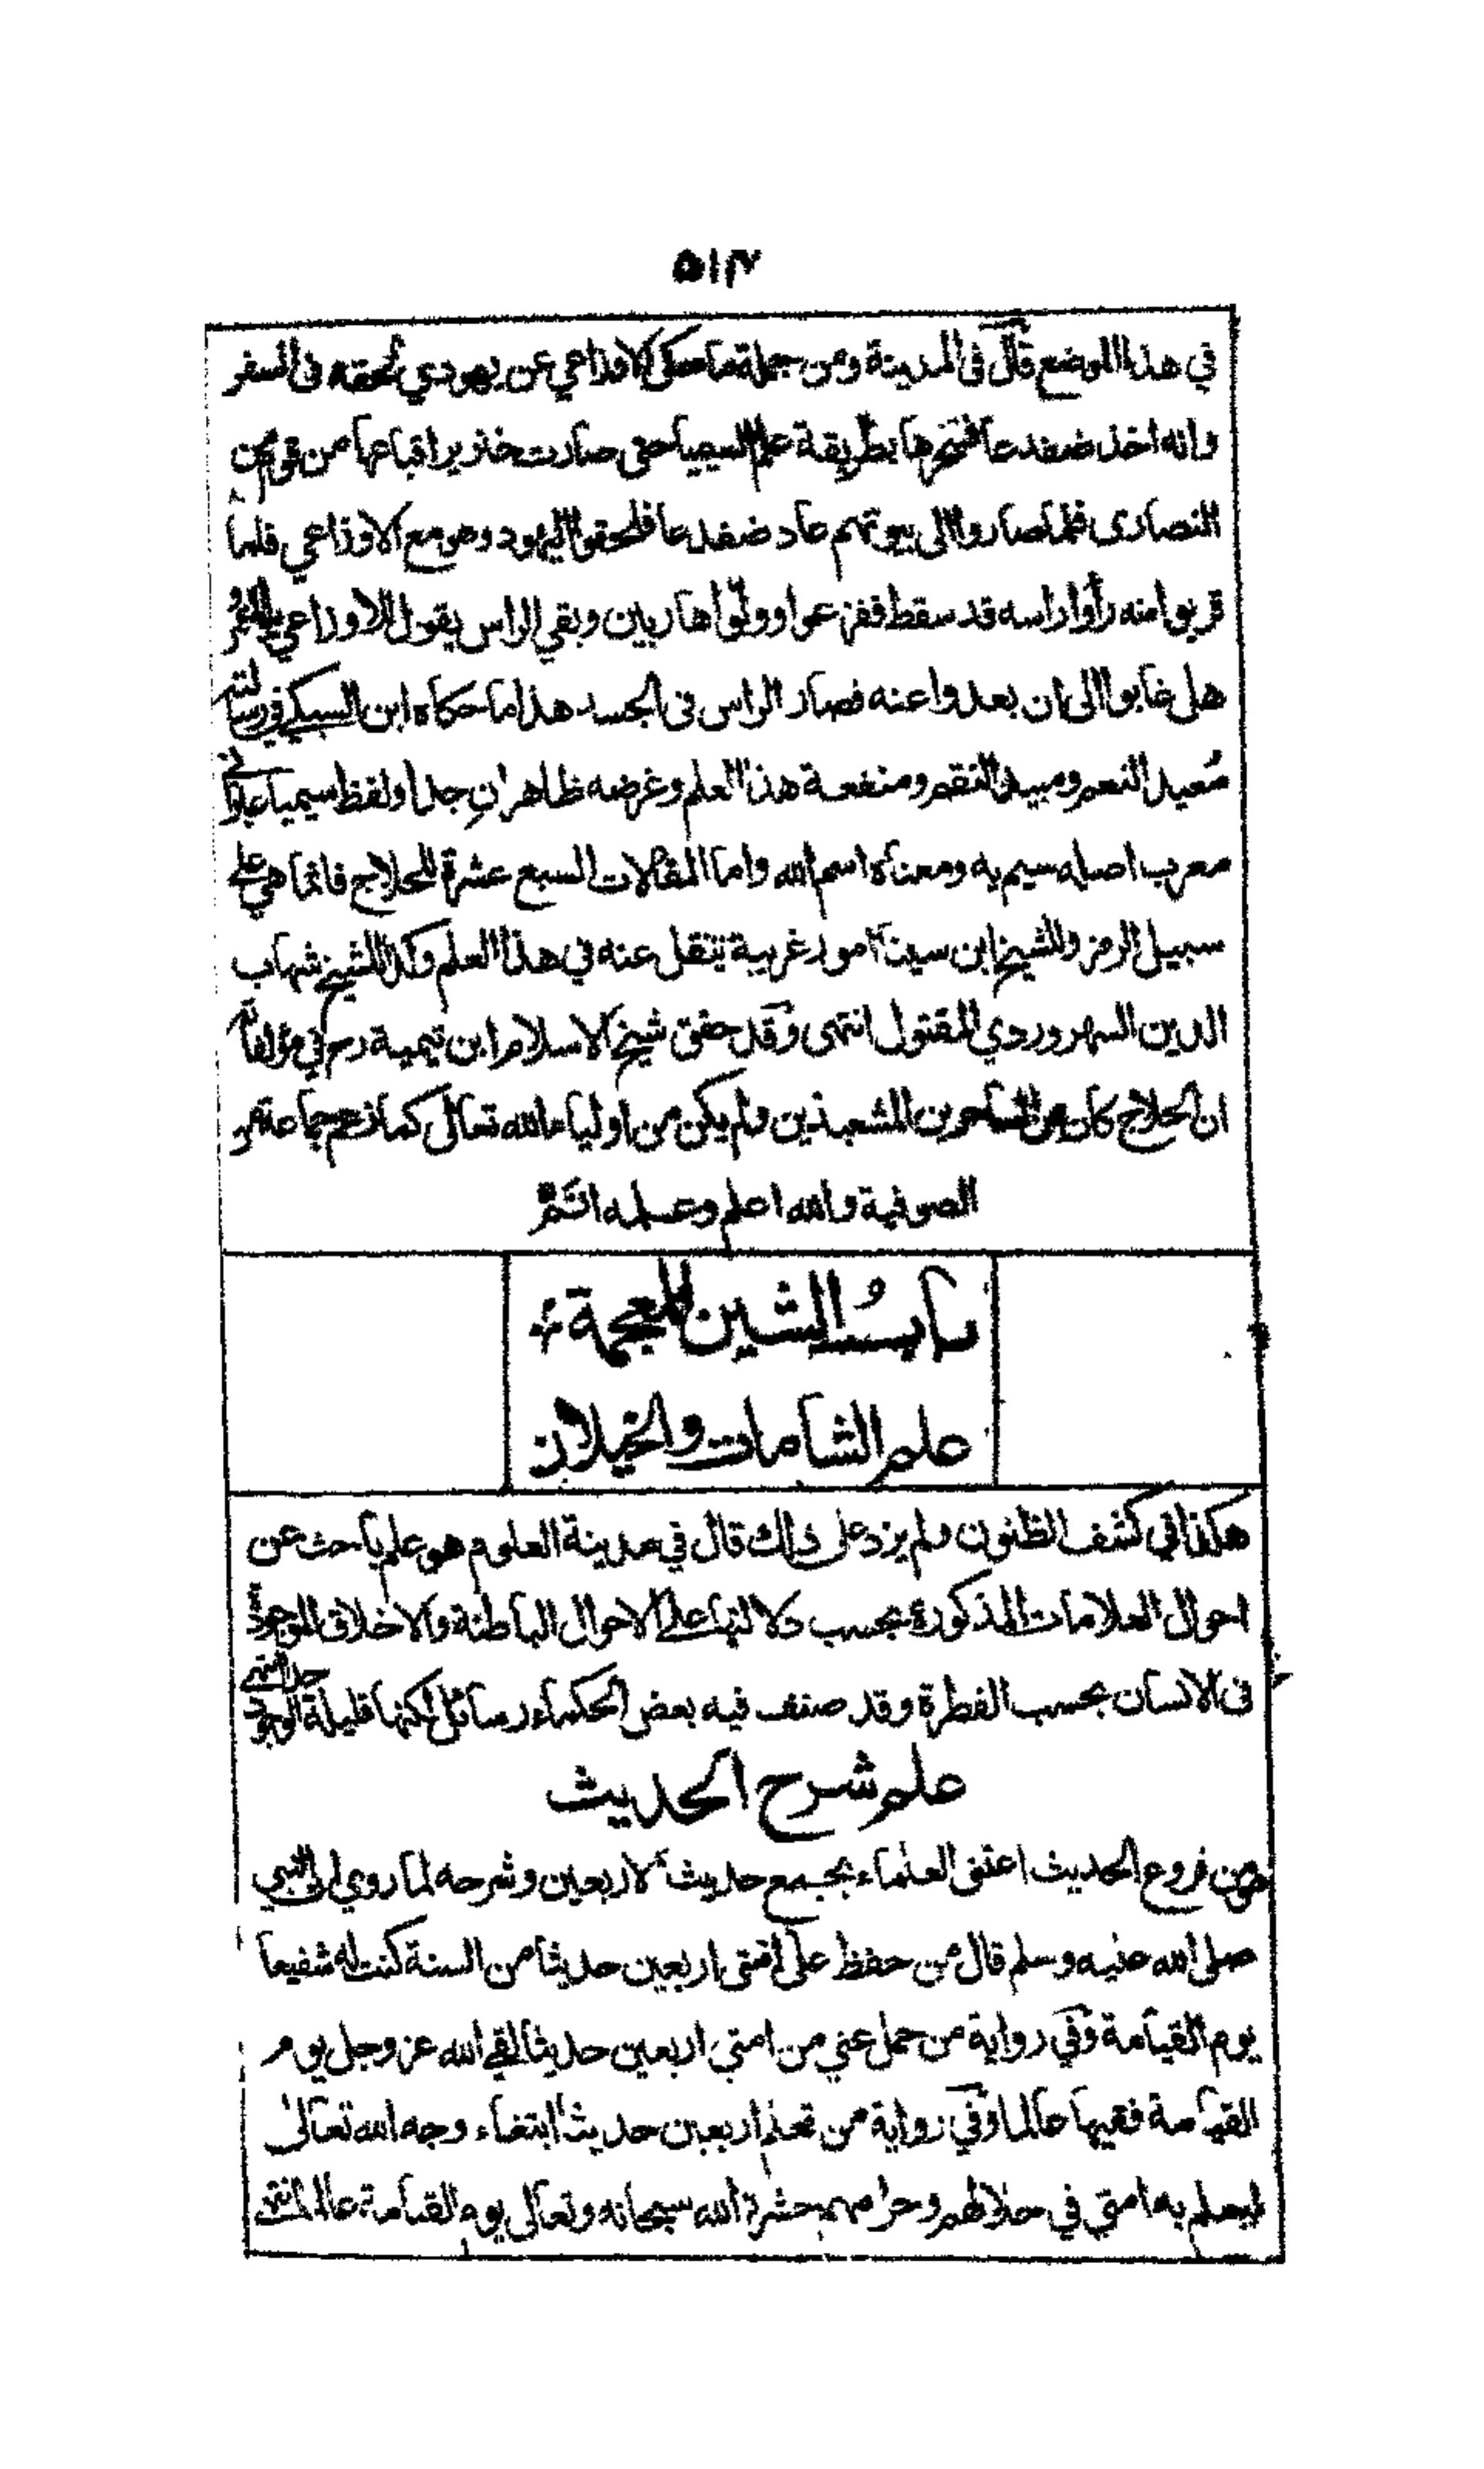 ٥١٣
في هذا الموضع قال فى المدينة ومن جملة ما حكى الاوزاعي عن يهودي لحقه فى السفر
وانه اخذ ضفدعا فسحرها بطريقة علم السيميا حتى صارت خنزيرا فباعها من قوم من
النصارى فلما صاروا الى بيوتهم عاد ضفدعا فلحقوا اليهود وهو مع الاوزاعي فلما
قربوا منه رأوا راسه قد سقط ففزعوا وولّوا هاربين وبقي الراس يقول للاوزاعي يا ابا عمرو
هل غابوا الى ان بعدوا عنه فصار الراس فى الجسد هذا ما حكاه ابن السبكي في رسالته
مُعيد النعم ومبيد النقم ومنفعة هذا العلم وغرضه ظاهران جدا ولفظ سيميا عبراني
معرب اصله سيم يه ومعناه اسم الله واما المقالات السبع عشرة للحلاج فانما هي على
سبيل الرمز وللشيخ ابن سينا امور غريبة تنقل عنه في هذا العلم وكذا للشيخ شهاب
الدين السهروردي المقتول انتهى وقد حقق شيخ الاسلام ابن تيمية رح في مؤلفاته
ان الحلاج كان من الساحرين المشعبذين ولم يكن من اولياء الله تعالى كما زعم جماعة من
الصوفية والله اعلم وعلمه اتم
بابُ الشين المعجمة
علم الشامات والخيلان
هكذا في كشف الظنون ولم يزد على ذلك قال في مدينة العلوم هو علم باحث عن
احوال العلامات المذكورة بحسب دلالتها على الاحوال الباطنة والاخلاق الموجودة
فى الانسان بحسب الفطرة وقد صنف فيه بعض الحكماء رسائل لكنها قليلة الوجود جدا انتهى
علم شرح الحديث
من فروع الحديث اعتنى العلماء بجمع حديث الاربعين وشرحه لما روي ان النبي
صلى الله عليه وسلم قال من حفظ على امتى اربعين حديثا من السنة كنت له شفيعا
يوم القيامة وفي رواية من حمل عني من امتي اربعين حديثا لقي الله عز وجل يوم
القيامة فقيها عالما وفي رواية من تعلم اربعين حديثا ابتغاء وجه الله تعالى
ليعلم به امتي في حلالهم وحرامهم حشره الله سبحانه وتعالى يوم القيامة عالما